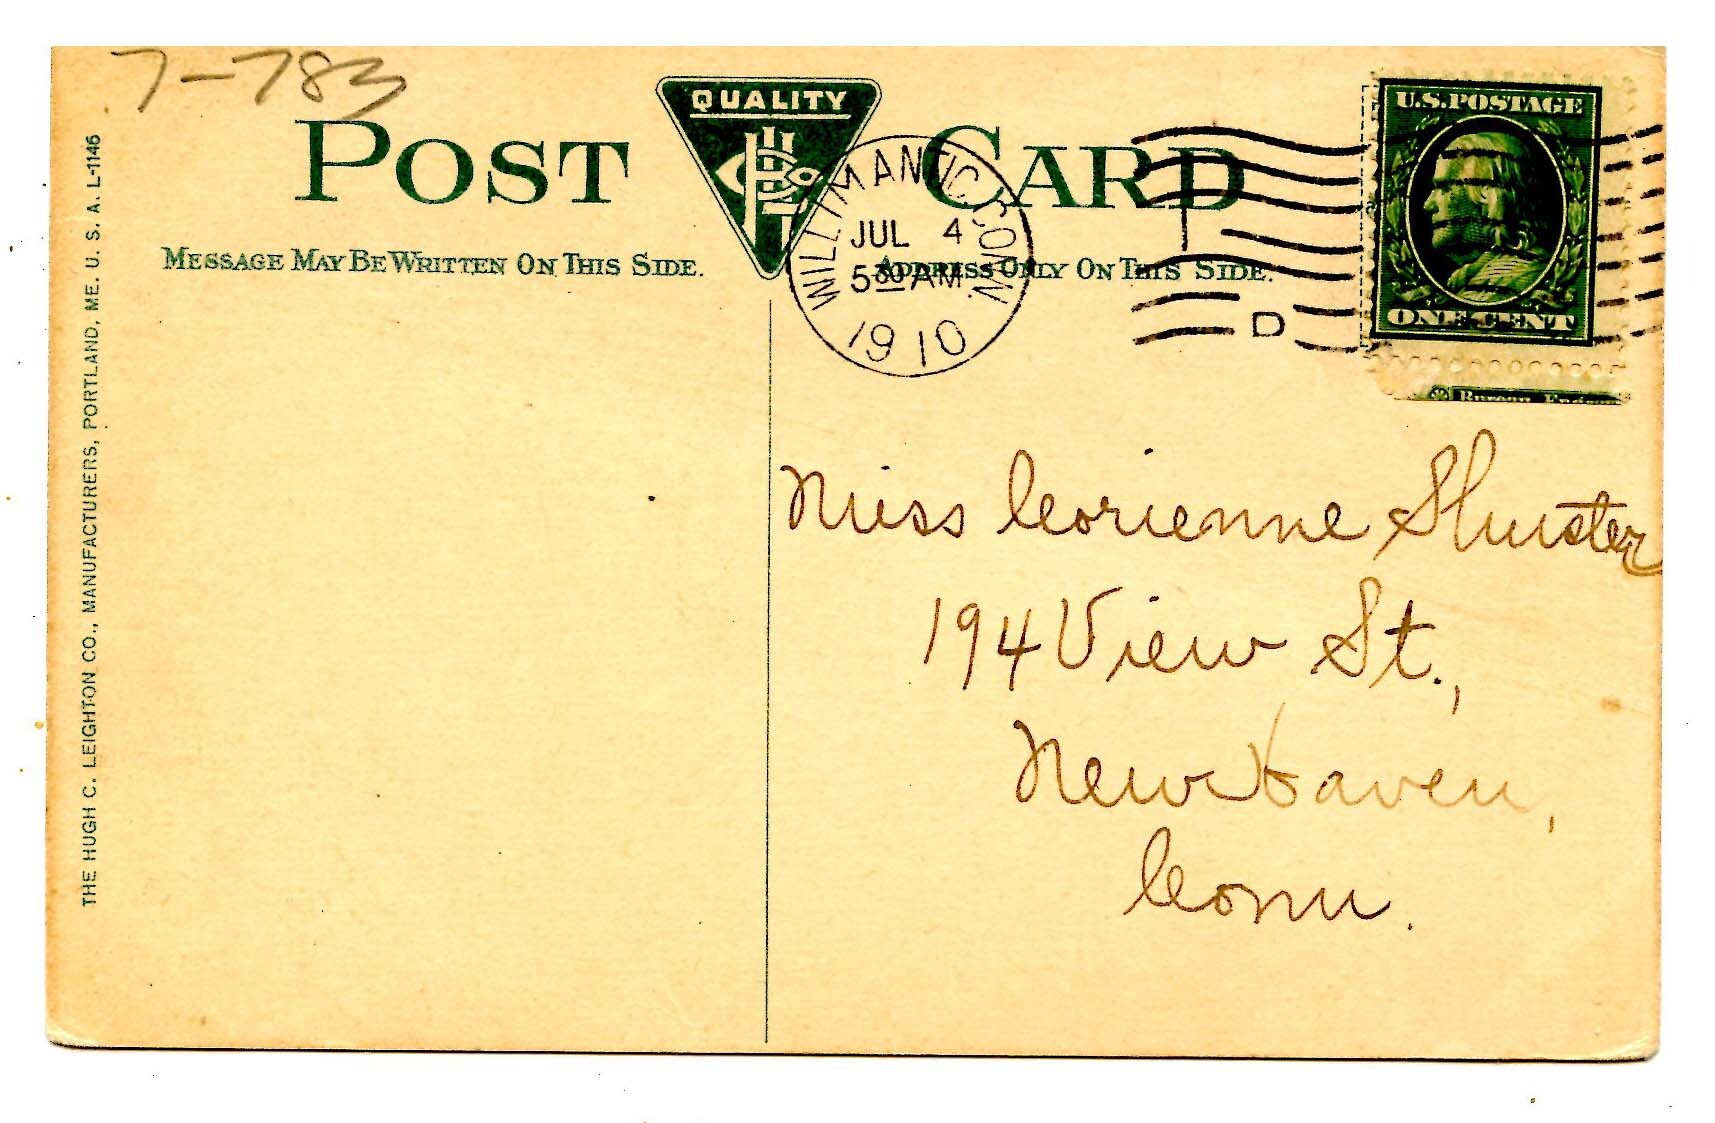 7-783
POST CARD
QUALITY
U.S. POSTAGE
ONE CENT
WILLIMANTIC, CONN.
JUL 4
5 30 AM
1910
D
MESSAGE MAY BE WRITTEN ON THIS SIDE.
ADDRESS ONLY ON THIS SIDE.
THE HUGH C. LEIGHTON CO., MANUFACTURERS, PORTLAND, ME. U. S. A. L-1146
Miss Corienne Shuster
194 View St.,
New Haven,
Conn.